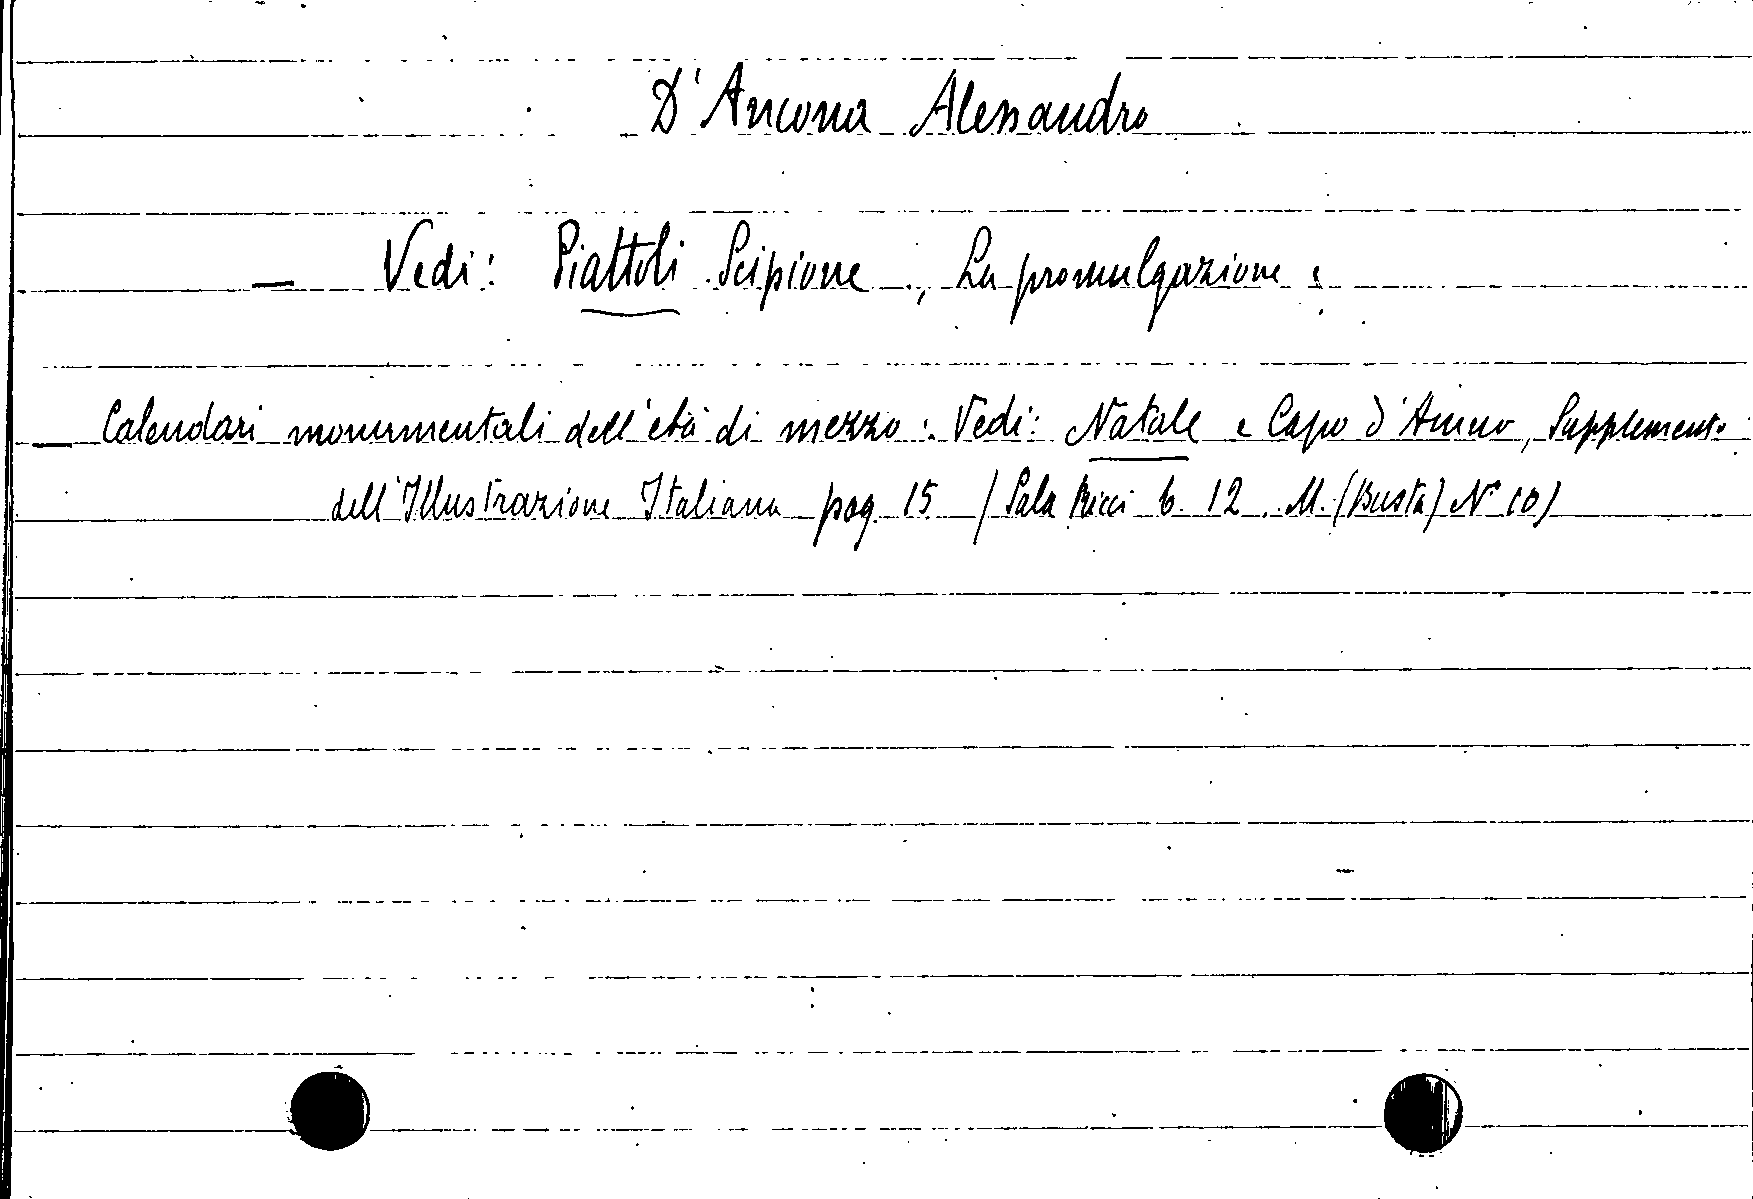 D'Ancona Alessandro
— Vedi: Piattoli Scipione, La promulgazione.
— Calendari monumentali dell'età di mezzo. Vedi: Natale e Capo d'Anno, Supplemento
dell'Illustrazione Italiana pag. 15 (Sala Ricci b. 12. M. (Busta) N° 10)